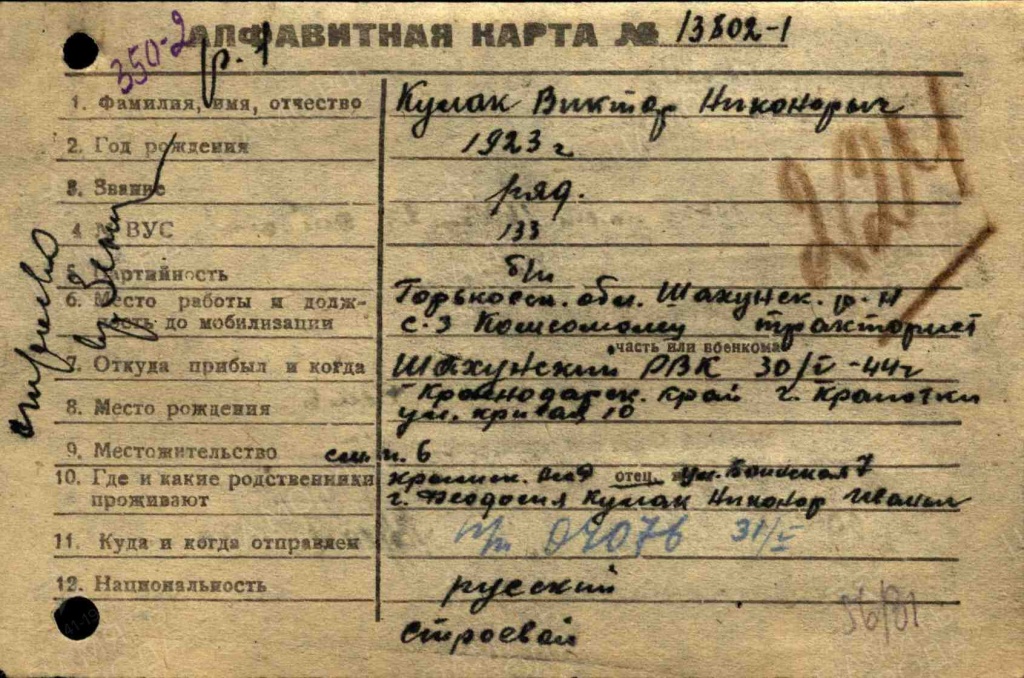 АЛФАВИТНАЯ КАРТА № 13802-1
350-2
р. 1
1. Фамилия, имя, отчество Кулак Виктор Никонорыч
2. Год рождения 1923 г
3. Звание ряд.
4 № ВУС 133
5. Партийность б/п
6. Место работы и долж-
ность до мобилизации
Горьковск. обл. Шахунск. р-н
с-з Комсомолец тракторист
часть или военкомат
7. Откуда прибыл и когда Шахунский РВК 30/V-44г
8. Место рождения Краснодарск. край г. Кропоткин
ул. кривая 10
9. Местожительство см. п. 6
10. Где и какие родственники
проживают
отец ул. 7
г. Феодосия Кулак Никонор Иваныч
11. Куда и когда отправлен п/п 04076 31/V
12. Национальность русский
Строевой
224
56/81